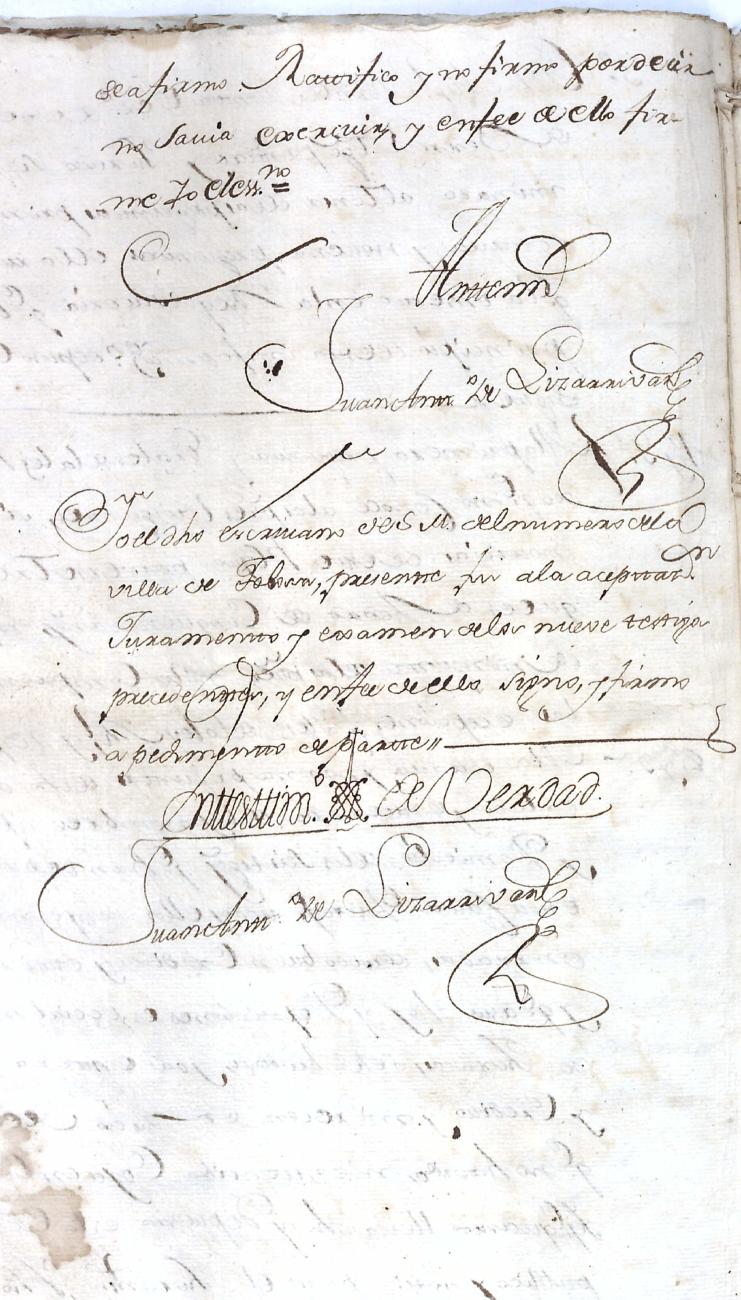 se afirmo Ratifico y no firmo por decir
no savia escrivir, y en fee de ello fir-
me Yo el ess.no =
Antte mi
Juan Antt.o de Lizarrivar
Yo el dho escrivano de S M. del numero de la
villa de Tolosa, presente fui a la aceptac.on
Juramento y examen de los nueve testigos
precedentes, y en fee de ello signo, y firmo
à pedimento de parte //
En ttesttim.o de Verdad.
Juan Antt.o de Lizarrivar